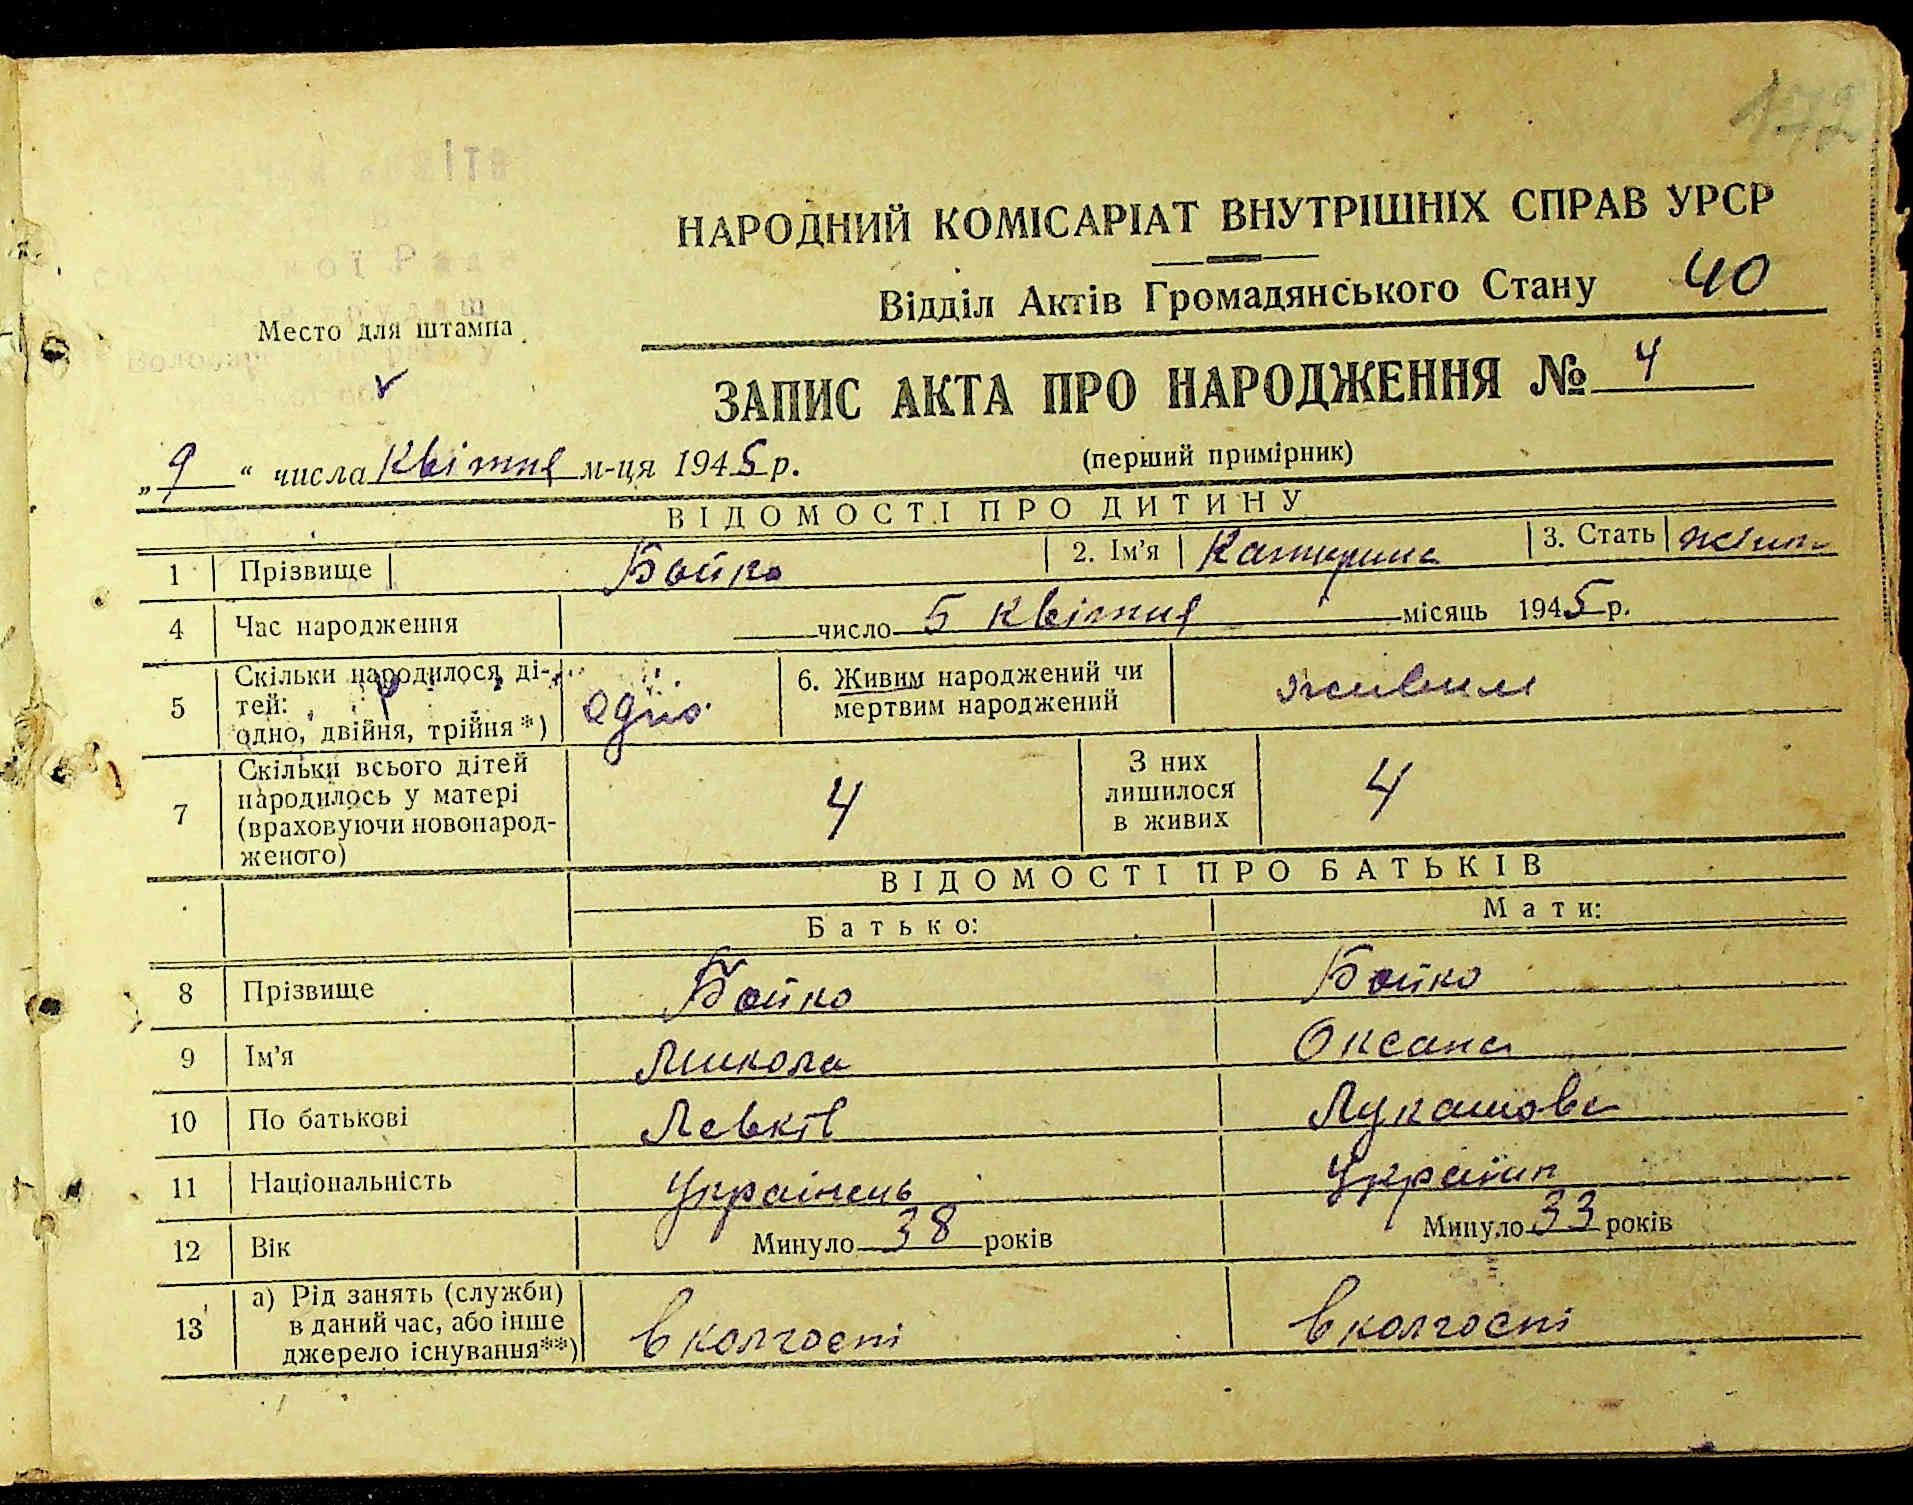 172
НАРОДНИЙ КОМІСАРІАТ ВНУТРІШНІХ СПРАВ УРСР
Відділ Актів Громадянського Стану 40
Место для штампа
ЗАПИС АКТА ПРО НАРОДЖЕННЯ № 4
„ 9 “ числа квітня м-ця 1945 р. (перший примірник)
ВІДОМОСТІ ПРО ДИТИНУ
1 Прізвище Бойко 2. Ім’я Катерина 3. Стать жін
4 Час народження число 5 квітня місяць 1945 р.
5 Скільки народилося ді-
тей:
одно, двійня, трійня*) одно 6. Живим народжений чи
мертвим народжений живим
7 Скільки всього дітей
народилось у матері
(враховуючи новонарод-
женого) 4 З них
лишилося
в живих 4
ВІДОМОСТІ ПРО БАТЬКІВ
Батько: Мати:
8 Прізвище Бойко Бойко
9 Ім’я Микола Оксана
10 По батькові Левків Лукашова
11 Національність Українець Україн
12 Вік Минуло 38 років Минуло 33 років
13 а) Рід занять (служби)
в даний час, або інше
джерело існування**) в колгоспі в колгоспі